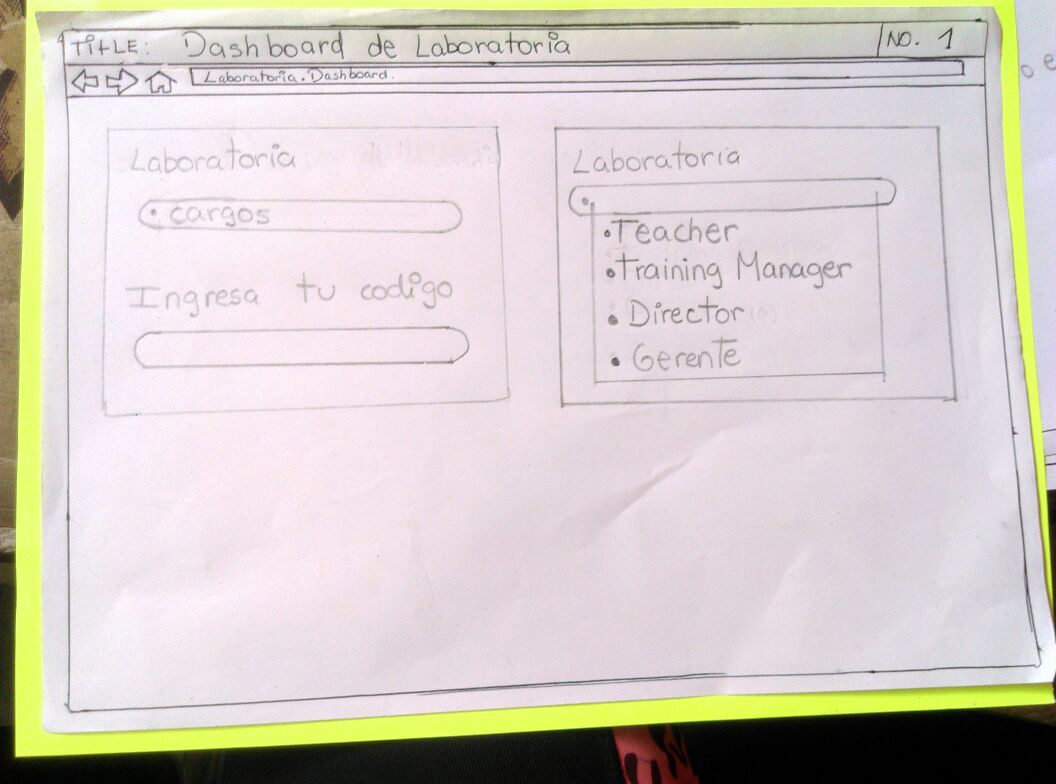 TITLE: Dashboard de Laboratoria NO. 1
Laboratoria.Dashboard.
Laboratoria
• cargos
Ingresa tu codigo
Laboratoria
• Teacher
• Training Manager
• Director
• Gerente